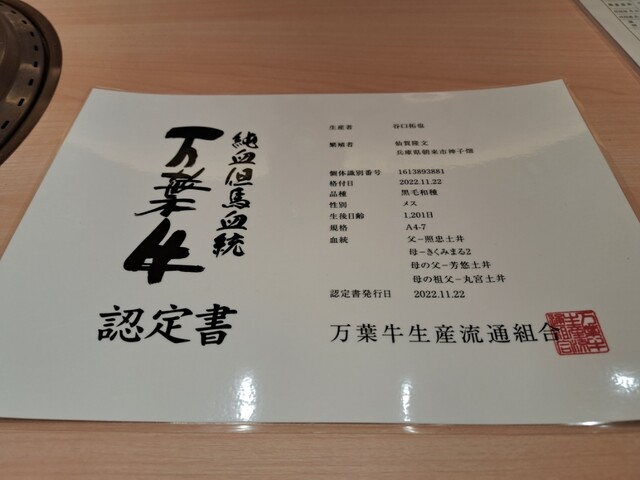 純血但馬血統
万葉牛
認定書
生産者 谷口拓也
繁殖者 仙賀隆文
兵庫県朝来市神子畑
個体識別番号 1613893881
格付日 2022.11.22
品種 黒毛和種
性別 メス
生後日齢 1,201日
規格 A4-7
血統 父－照忠土井
母－きくみまる2
母の父－芳悠土井
母の祖父－丸宮土井
認定書発行日 2022.11.22
万葉牛生産流通組合